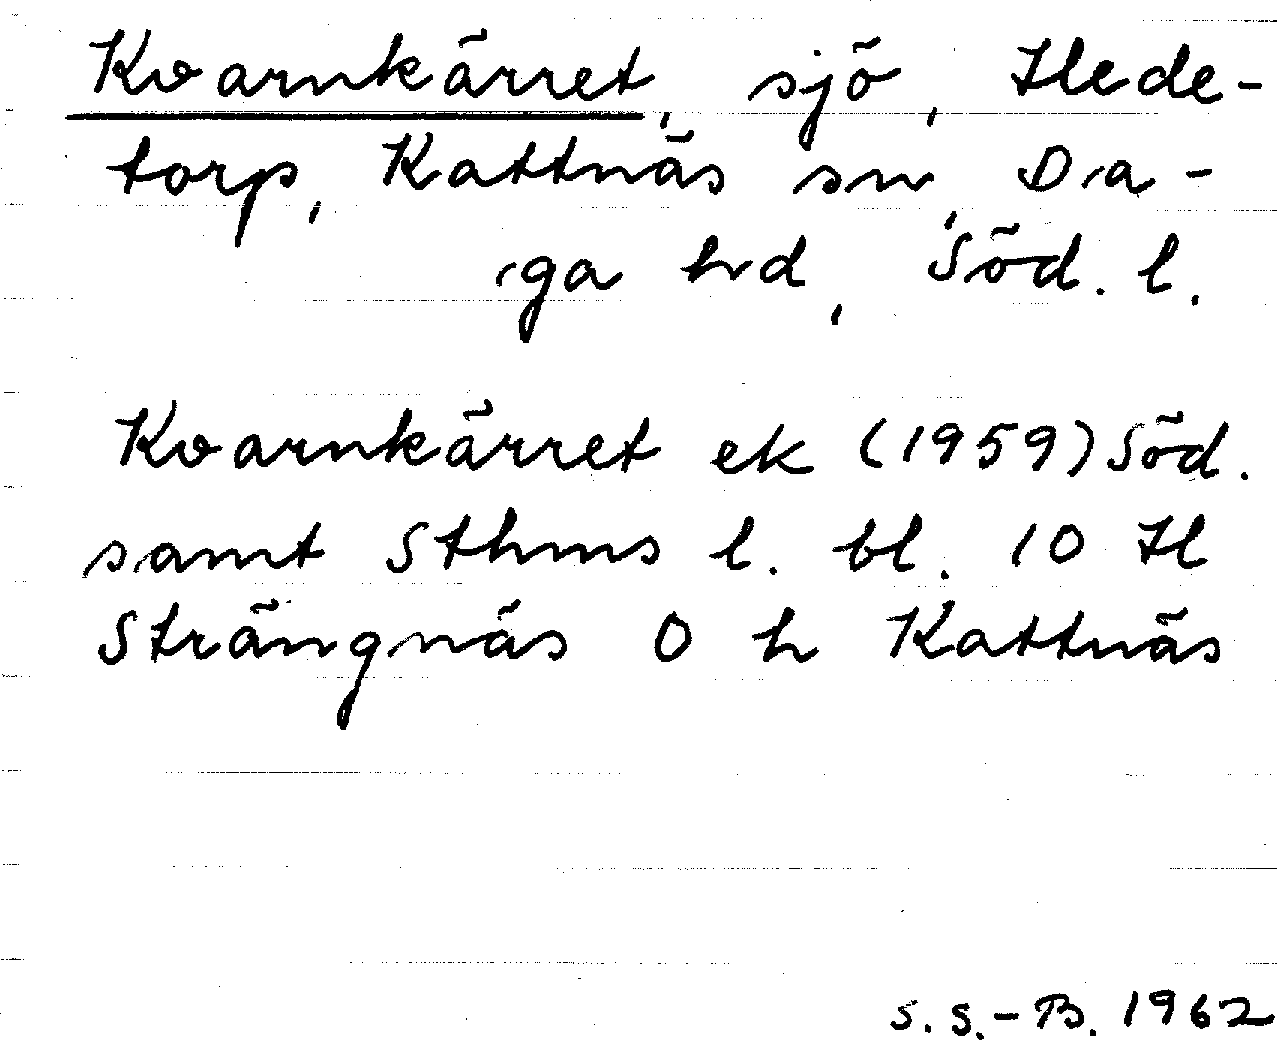 Kvarnkärret, sjö, Hede-
torp, Kattnäs sn, Da-
ga hd, Söd. l.
Kvarnkärret ek (1959) Söd.
samt Sthms l. bl. 10 H
Strängnäs O h Kattnäs
S. S.-B. 1962